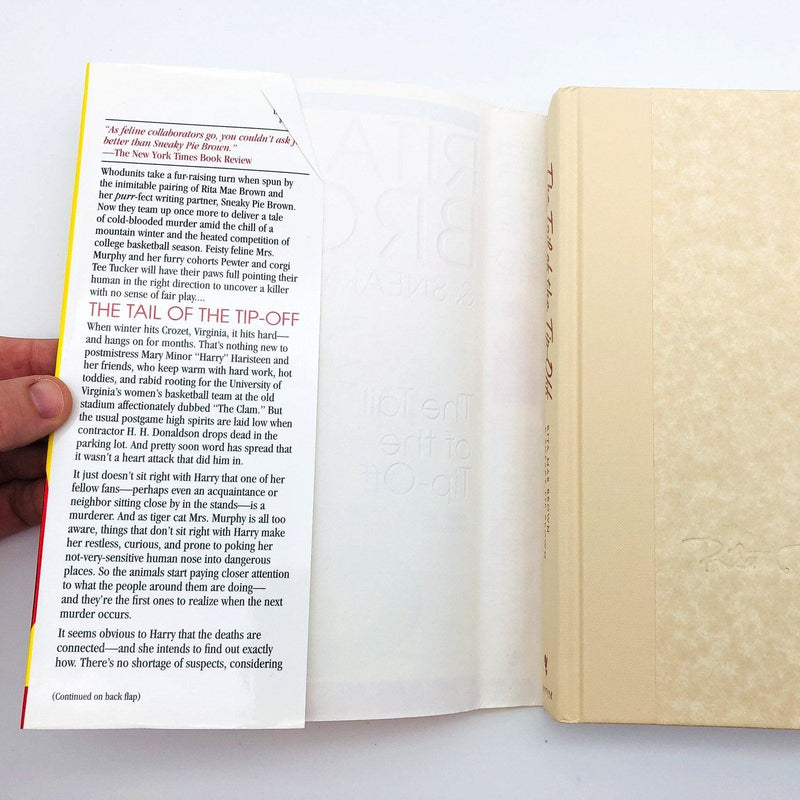 "As feline collaborators go, you couldn't ask
better than Sneaky Pie Brown."
—The New York Times Book Review
Whodunits take a fur-raising turn when spun by
the inimitable pairing of Rita Mae Brown and
her purr-fect writing partner, Sneaky Pie Brown.
Now they team up once more to deliver a tale
of cold-blooded murder amid the chill of a
mountain winter and the heated competition of
college basketball season. Feisty feline Mrs.
Murphy and her furry cohorts Pewter and corgi
Tee Tucker will have their paws full pointing their
human in the right direction to uncover a killer
with no sense of fair play....
THE TAIL OF THE TIP-OFF
When winter hits Crozet, Virginia, it hits hard—
and hangs on for months. That's nothing new to
postmistress Mary Minor "Harry" Haristeen and
her friends, who keep warm with hard work, hot
toddies, and rabid rooting for the University of
Virginia's women's basketball team at the old
stadium affectionately dubbed "The Clam." But
the usual postgame high spirits are laid low when
contractor H. H. Donaldson drops dead in the
parking lot. And pretty soon word has spread that
it wasn't a heart attack that did him in.
It just doesn't sit right with Harry that one of her
fellow fans—perhaps even an acquaintance or
neighbor sitting close by in the stands—is a
murderer. And as tiger cat Mrs. Murphy is all too
aware, things that don't sit right with Harry make
her restless, curious, and prone to poking her
not-very-sensitive human nose into dangerous
places. So the animals start paying closer attention
to what the people around them are doing—
and they're the first ones to realize when the next
murder occurs.
It seems obvious to Harry that the deaths are
connected—and she intends to find out exactly
how. There's no shortage of suspects, considering
(Continued on back flap)
RITA
BRO
& SNEAK
The Tail
of the
Tip-Off
The Tail of the Tip-Off
RITA MAE BROWN